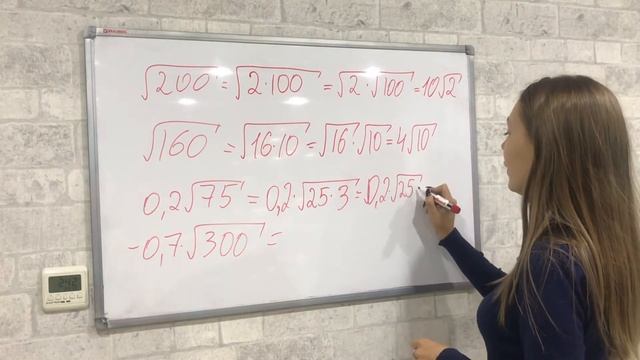 √200 = √2·100 = √2·√100 = 10√2
√160 = √16·10 = √16·√10 = 4√10
0,2√75 = 0,2·√25·3 = 0,2√25·
-0,7·√300 =